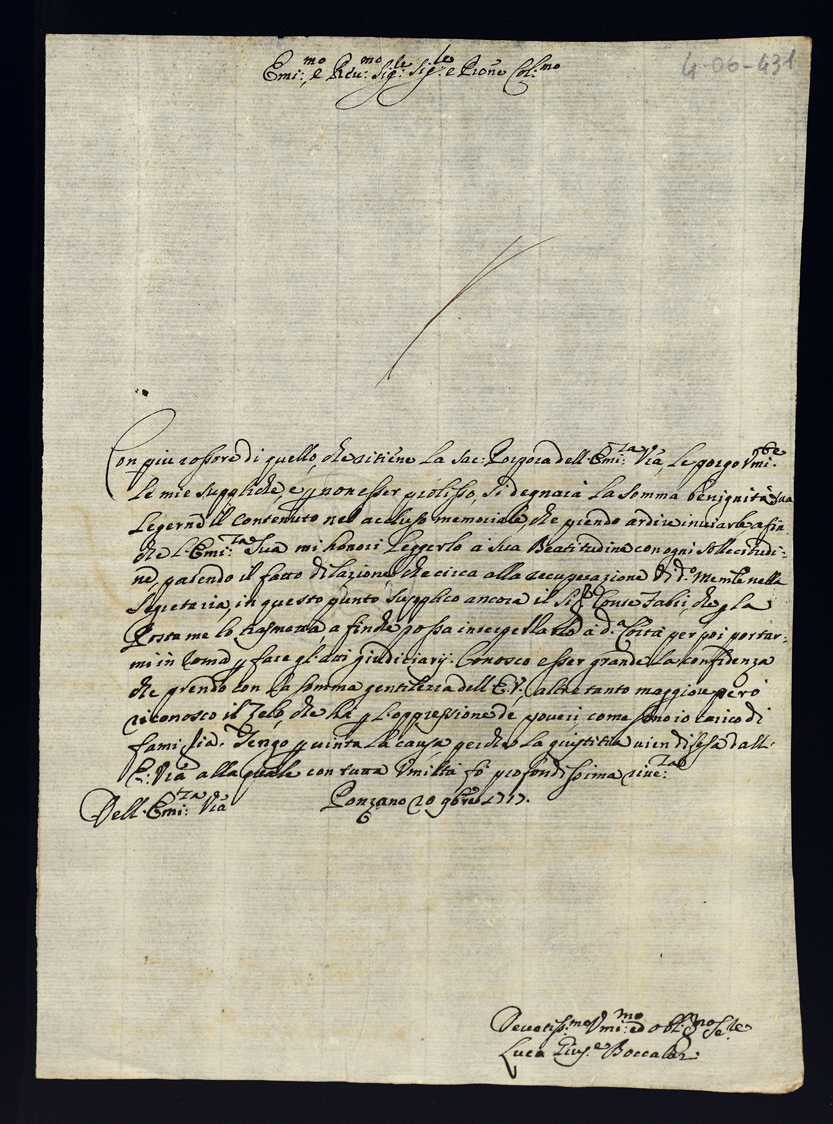 Emi:mo, e Reu:mo Sig:le Sig:le e Prone Col:mo
4-06-431
Con piu rossore di quello, che ritiene la Sac: Porpora dell'Emi:za Vra, le porgo Vmi:
le mie suppliche, e p non esser prolisso, si degnarà la somma benignità sua
legerne il contenuto nel acluso memoriale, che prendo ardire inuiarle afin
che l'Emi:za Sua mi honori leggerlo à Sua Beatitudine con ogni sollecitudi-
ne, patendo il fatto dilazione che circa alla recuperazione di do Memle nella
Segretaria, in questo punto supplico ancora il Sig Conte Fabii, che p la
Posta me lo trasmetta a finche possa
mi in Roma p fare gl'atti giudiciarij. Conosco esser grande la confidenza
che prendo con la somma gentilezza dell'E.V., altretanto maggiore però
riconosco il Zelo, che ha p l'oppressione de poueri, come sono io carico di
famiglia. Tengo p uinta la causa perche la giustitia uien difesa dall'
E: Vra alla quale con tutta Vmiltà fò profondissima riue:za
Dell'Emi:za Vra Ponzano 20 9bre 1717.
Deuotiss:mo Vmi:mo ed obl:mo Se:le
Luca